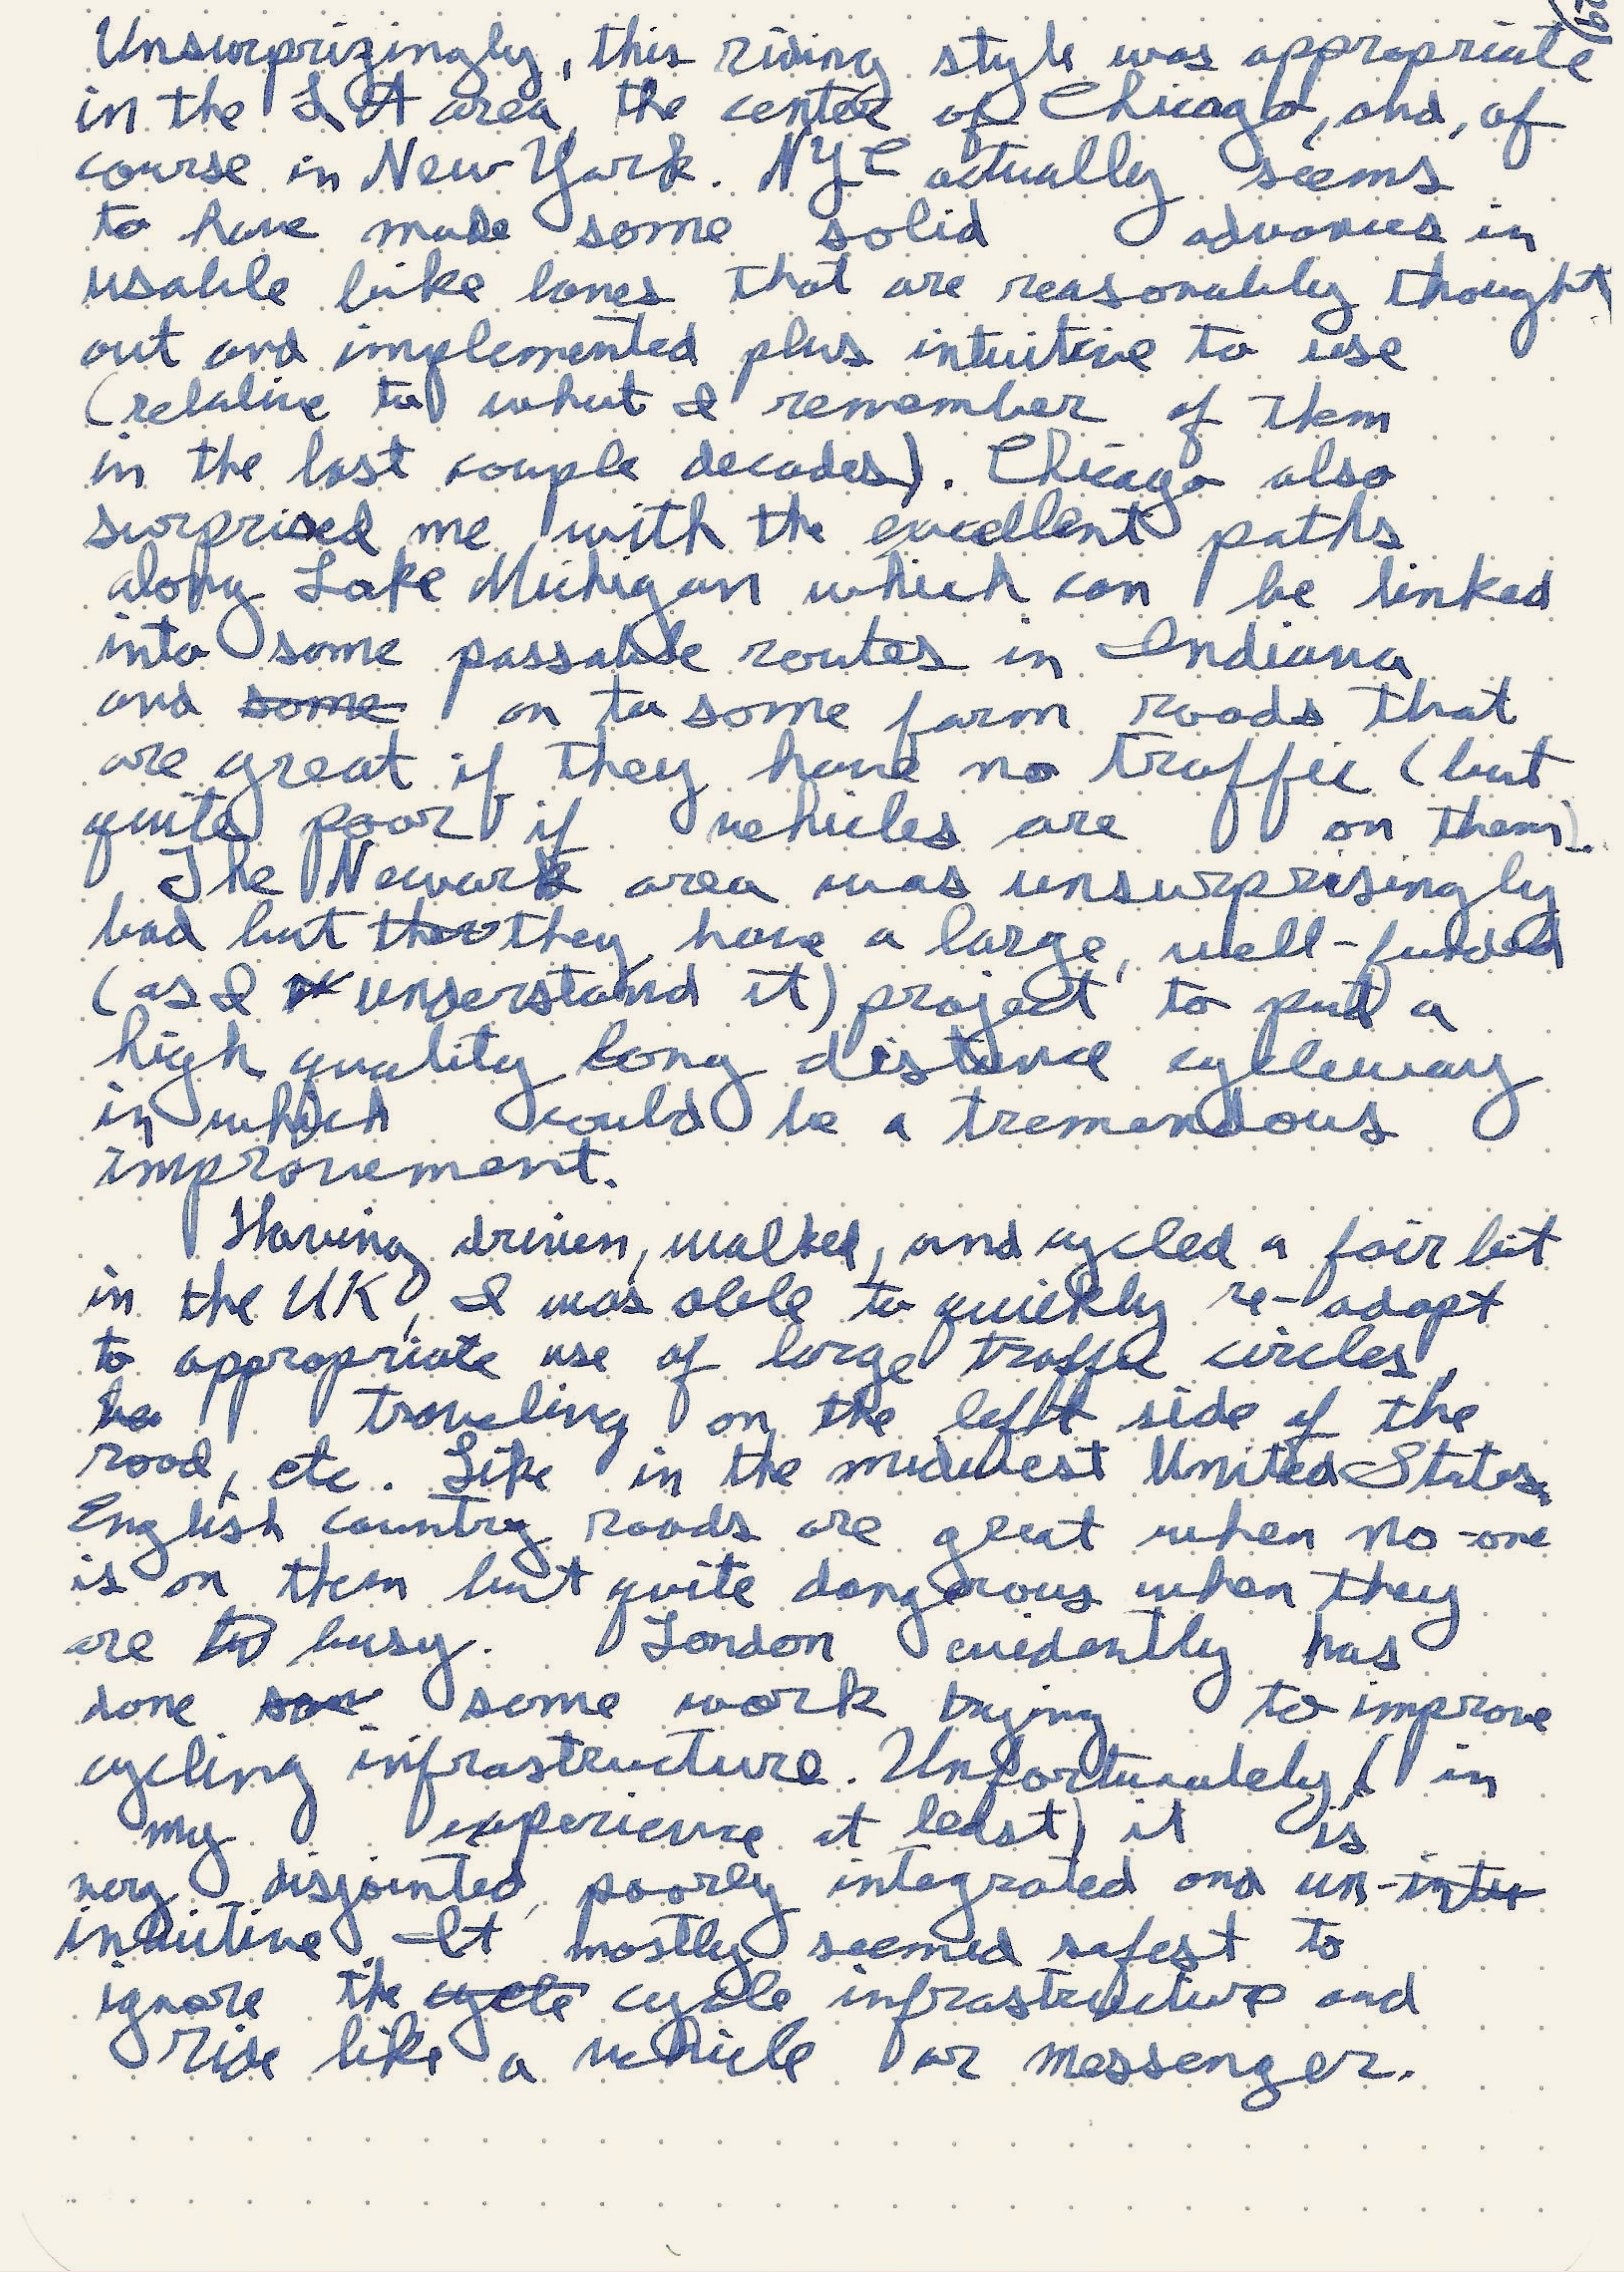 Unsurprizingly, this riding style was appropriate
in the LA area, the center of Chicago, and, of
course in New York. NYC actually seems
to have made some solid advances in
usable bike lanes that are reasonably thought
out and implemented plus intuitive to use
(relative to what I remember of them
in the last couple decades). Chicago also
surprised me with the excellent paths
along Lake Michigan which can be linked
into some passable routes in Indiana
and some on to some farm roads that
are great if they have no traffic (but
quite poor if vehicles are on them).
The Newark area was unsurprisingly
bad but they have a large, well-funded
(as I understand it) project to put a
high quality long distance cycleway
in which could be a tremendous
improvement.
Having driven, walked, and cycled a fair bit
in the UK, I was able to quickly re-adapt
to appropriate use of large traffic circles,
traveling on the left side of the
road, etc. Like in the midwest United States,
English country roads are great when no-one
is on them but quite dangerous when they
are busy. London evidently has
done some work trying to improve
cycling infrastructure. Unfortunately (in
my experience at least) it is
very disjointed, poorly integrated and un-
intuitive. It mostly seemed safest to
ignore the cycle cycle infrastructure and
ride like a vehicle or messenger.